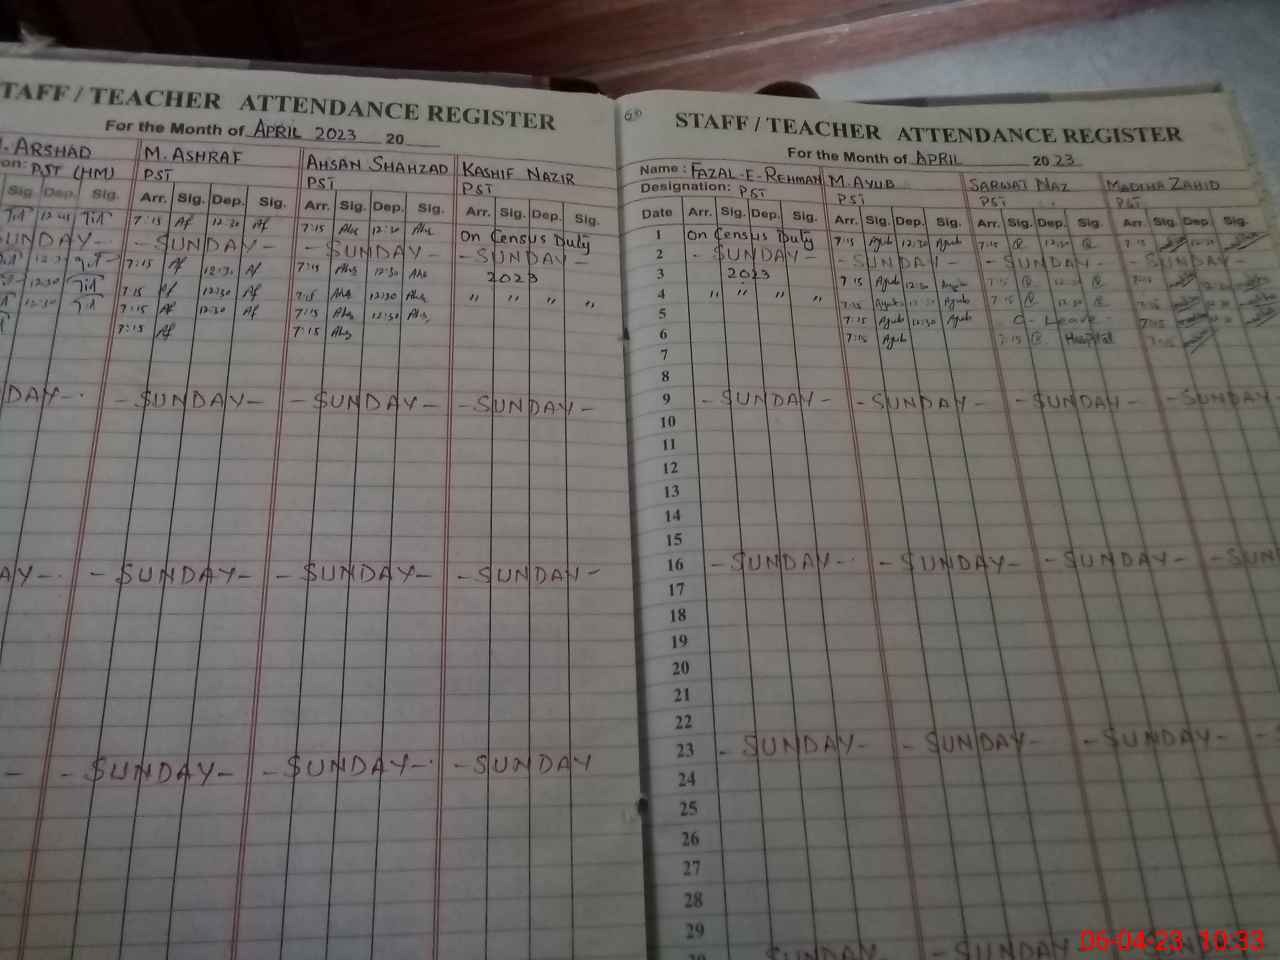 TAFF / TEACHER ATTENDANCE REGISTER
For the Month of APRIL 2023 20
. ARSHAD M. ASHRAF AHSAN SHAHZAD KASHIF NAZIR
on: PST (HM) PST PST PST
Sig. Dep. Sig. Arr. Sig. Dep. Sig. Arr. Sig. Dep. Sig. Arr. Sig. Dep. Sig.
7:15 Af 12:30 Af 7:15 Ahs 12:30 Ahs On Census Duty
SUNDAY - SUNDAY - - SUNDAY - - SUNDAY -
12:30 7:15 Af 12:30 Af 7:15 Ahs 12:30 Ahs 2023
12:30 7:15 Af 12:30 Af 7:15 Ahs 12:30 Ahs " " " "
12:30 7:15 Af 12:30 Af 7:15 Ahs 12:30 Ahs
7:15 Af 7:15 Ahs
DAY - - SUNDAY - - SUNDAY - - SUNDAY -
AY - - SUNDAY - - SUNDAY - - SUNDAY -
- - SUNDAY - - SUNDAY - - SUNDAY
60
STAFF / TEACHER ATTENDANCE REGISTER
For the Month of APRIL 2023
Name : FAZAL-E-REHMAN M. AYUB SARWAT NAZ MADIHA ZAHID
Designation: PST PST PST PST
Date Arr. Sig. Dep. Sig. Arr. Sig. Dep. Sig. Arr. Sig. Dep. Sig. Arr. Sig. Dep. Sig.
1 On Census Duty 7:15 Ayub 12:30 Ayub 7:15 12:30 7:15 12:30
2 - SUNDAY - - SUNDAY - - SUNDAY - - SUNDAY -
3 2023 7:15 Ayub 12:30 Ayub 7:15 12:30 7:15 12:30
4 " " " " 7:15 Ayub 12:30 Ayub 7:15 12:30 7:15 12:30
5 7:15 Ayub 12:30 Ayub C- Leave - 7:15
6 7:15 Ayub 7:15 Hospital 7:15
7
8
9 - SUNDAY - - SUNDAY - - SUNDAY - - SUNDAY -
10
11
12
13
14
15
16 - SUNDAY - - SUNDAY - - SUNDAY - - SUN
17
18
19
20
21
22
23 - SUNDAY - - SUNDAY - - SUNDAY - - S
24
25
26
27
28
29
30 SUNDAY - - SUNDAY SUNDAY
06-04-23 10:33